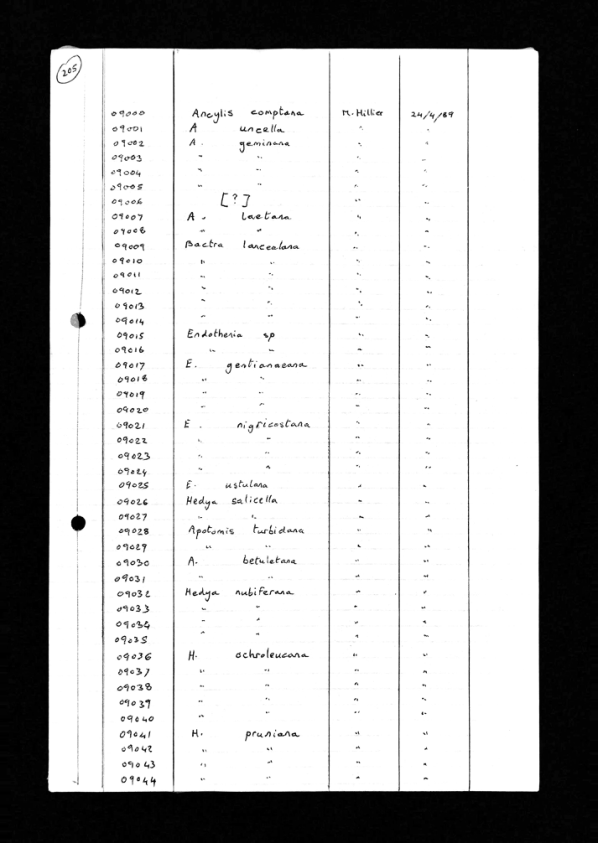 205
09000 Ancylis comptana M. Hillier 24/4/89
09001 A uncella " "
09002 A. geminana " "
09003 " " " "
09004 " " " "
09005 " " " "
09006 [?] " "
09007 A. laetana " "
09008 " " " "
09009 Bactra lancealana " "
09010 " " " "
09011 " " " "
09012 " " " "
09013 " " " "
09014 " " " "
09015 Endothenia sp " "
09016 " " " "
09017 E. gentianaeana " "
09018 " " " "
09019 " " " "
09020 " " " "
09021 E. nigricostana " "
09022 " " " "
09023 " " " "
09024 " " " "
09025 E. ustulana " "
09026 Hedya salicella " "
09027 " " " "
09028 Apotomis turbidana " "
09029 " " " "
09030 A. betuletana " "
09031 " " " "
09032 Hedya nubiferana " "
09033 " " " "
09034 " " " "
09035 " " " "
09036 H. ochroleucana " "
09037 " " " "
09038 " " " "
09039 " " " "
09040 " " " "
09041 H. pruniana " "
09042 " " " "
09043 " " " "
09044 " " " "